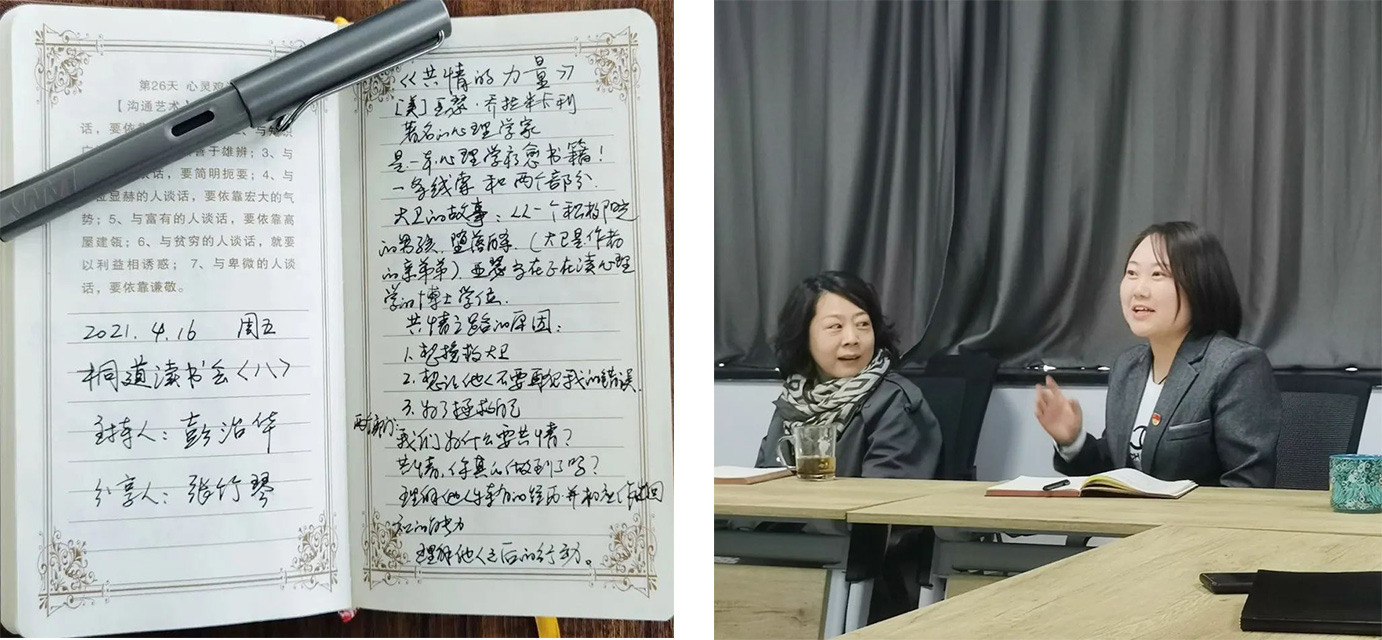 第26天 心灵鸡
【沟通艺术
话，要依 与知识
广 善于雄辨；3、与
谈话，要简明扼要；4、与
显赫的人谈话，要依靠宏大的气
势；5、与富有的人谈话，要依靠高
屋建瓴；6、与贫穷的人谈话，就要
以利益相诱惑；7、与卑微的人谈
话，要依靠谦敬。
2021.4.16 周五
桐道读书会〈八〉
主持人：彭治华
分享人：张竹琴
《共情的力量》
[美]亚瑟·乔拉米卡利
著名的心理学家
是一本心理学疗愈书籍！
一条线索和两个部分.
大卫的故事：从一个积极阳光
的男孩，堕落的.（大卫是作者
的亲弟弟）亚瑟当在子在读心理
学的博士学位.
共情之路的原因：
1.想拯救大卫
2.想让他人不要再犯我的错误
3.为了拯救自己
两个部分：
我们为什么要共情？
共情，你真的做到了吗？
理解他人特有的经历并相应作出回
应的能力
理解他人之后的行动。
LAMY